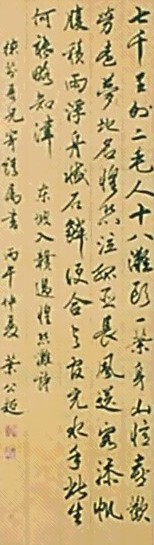 七千里外二毛人十八灘頭一葉身山憶喜歡
勞遠夢地名惶恐泣孤臣長風送客添帆
腹積雨浮舟減石鱗便合與官充水手此生
何略知津 東坡入贛過惶恐灘詩
吾兄屬書 丙午仲夏 葉公超